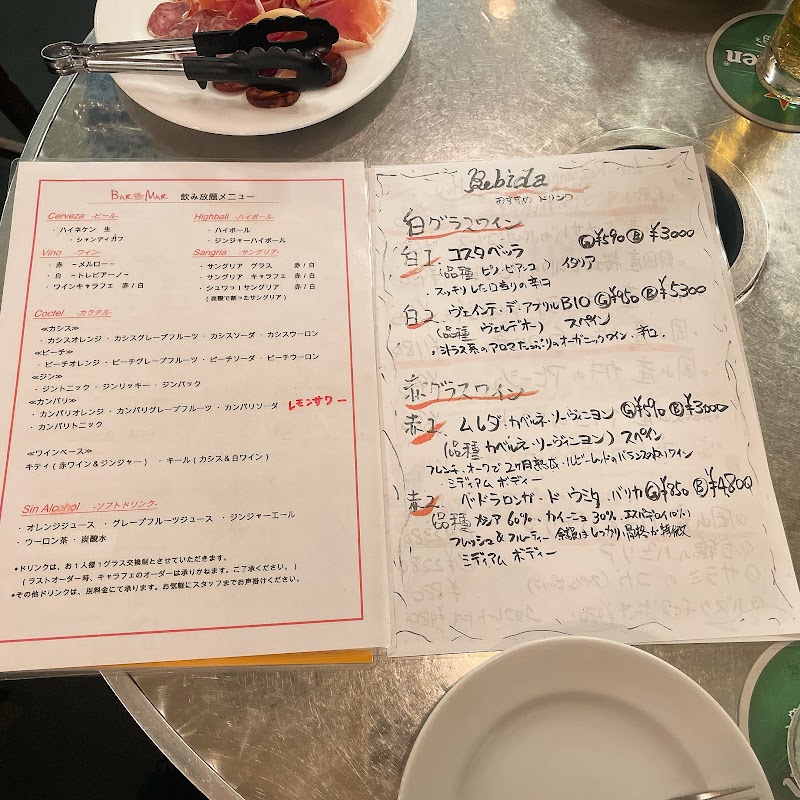 BAR de MAR 飲み放題メニュー
Cerveza -ビール-
・ハイネケン 生
・シャンディガフ
Vino -ワイン-
・赤 -メルロー-
・白 -トレビアーノ-
・ワインキャラフェ 赤/白
Highball -ハイボール-
・ハイボール
・ジンジャーハイボール
Sangria -サングリア-
・サングリア グラス 赤/白
・サングリア キャラフェ 赤/白
・シュワっ!サングリア 赤/白
(炭酸で割ったサングリア)
Coctel -カクテル-
≪カシス≫
・カシスオレンジ・カシスグレープフルーツ・カシスソーダ・カシスウーロン
≪ピーチ≫
・ピーチオレンジ・ピーチグレープフルーツ・ピーチソーダ・ピーチウーロン
≪ジン≫
・ジントニック・ジンリッキー・ジンバック
≪カンパリ≫
・カンパリオレンジ・カンパリグレープフルーツ・カンパリソーダ レモンサワー
・カンパリトニック
≪ワインベース≫
キティ(赤ワイン&ジンジャー) ・キール(カシス&白ワイン)
Sin Alcohol -ソフトドリンク-
・オレンジジュース ・グレープフルーツジュース ・ジンジャーエール
・ウーロン茶・炭酸水
*ドリンクは、お1人様1グラス交換制とさせていただきます。
(ラストオーダー時、キャラフェのオーダーは承りかねます。ご了承ください。)
*その他ドリンクは、別料金にて承ります。お気軽にスタッフまでお声掛けください。
Bebida
おすすめ ドリンク
白グラスワイン
白1. コスタベッラ Ⓖ¥590 Ⓑ¥3000
(品種 ピノ・ビアンコ) イタリア
・スッキリした口当りの辛口
白2. ヴェインテ・デ・アブリル BIO Ⓖ¥950 Ⓑ¥5300
(品種 ヴェルデホ) スペイン
・シトラス系のアロマたっぷりのオーガニックワイン・辛口.
赤グラスワイン
赤1. ムレダ・カベルネ・ソーヴィニヨン Ⓖ¥590 Ⓑ¥3000
(品種 カベルネ・ソーヴィニヨン) スペイン
フレンチ・オークで2ヶ月熟成・ルビーレッドのバランスの良いワイン
・ミディアム ボディー
赤2. ペドラロンガ・ド・ウミタ・バリカ Ⓖ¥850 Ⓑ¥4800
(品種 メンシア 60%、カイーニョ 30%、エスパデイロ 10%)
フレッシュ&フルーティー
・ミディアム ボディー
en